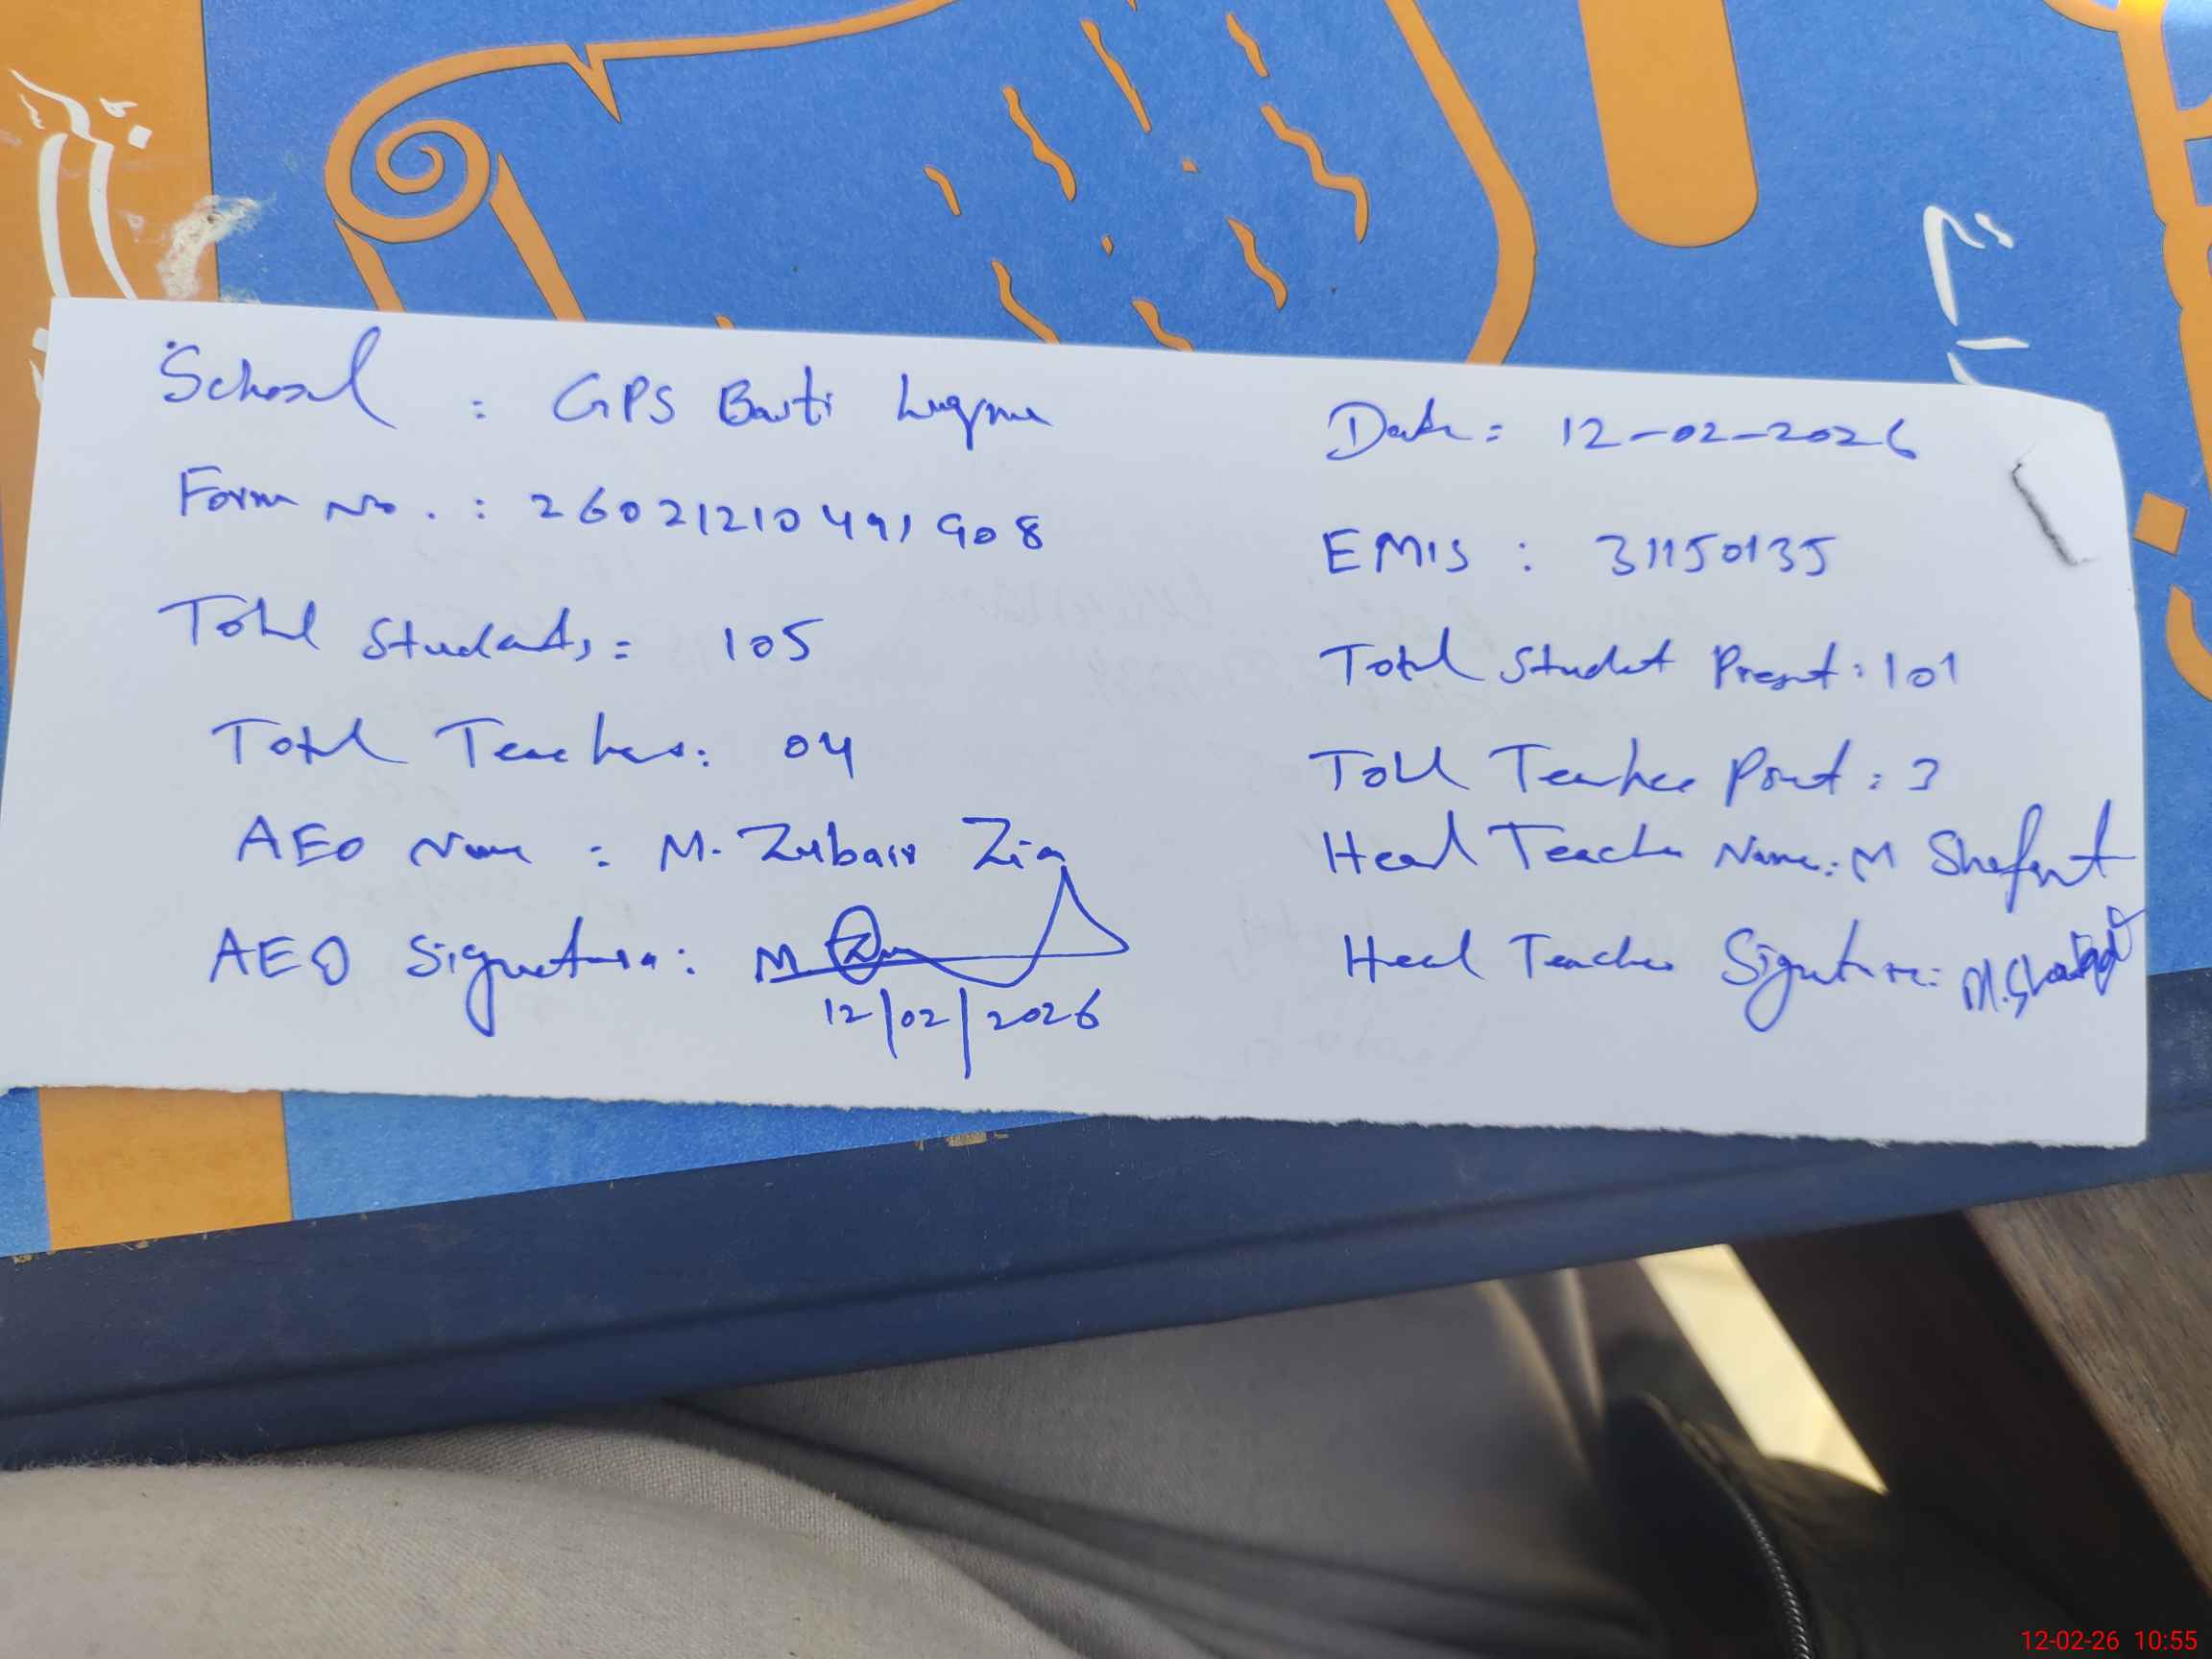 School : GPS Basti Luqman
Date: 12-02-2026
Form No. : 26021210491908
EMIS : 31150135
Total Students: 105
Total Student Present: 101
Total Teachers: 04
Total Teacher Present: 3
AEO Name : M. Zubair Zia
Head Teacher Name: M Shafqat
AEO Signature: M. Zia
12/02/2026
Head Teacher Signature: M. Shafqat
12-02-26 10:55